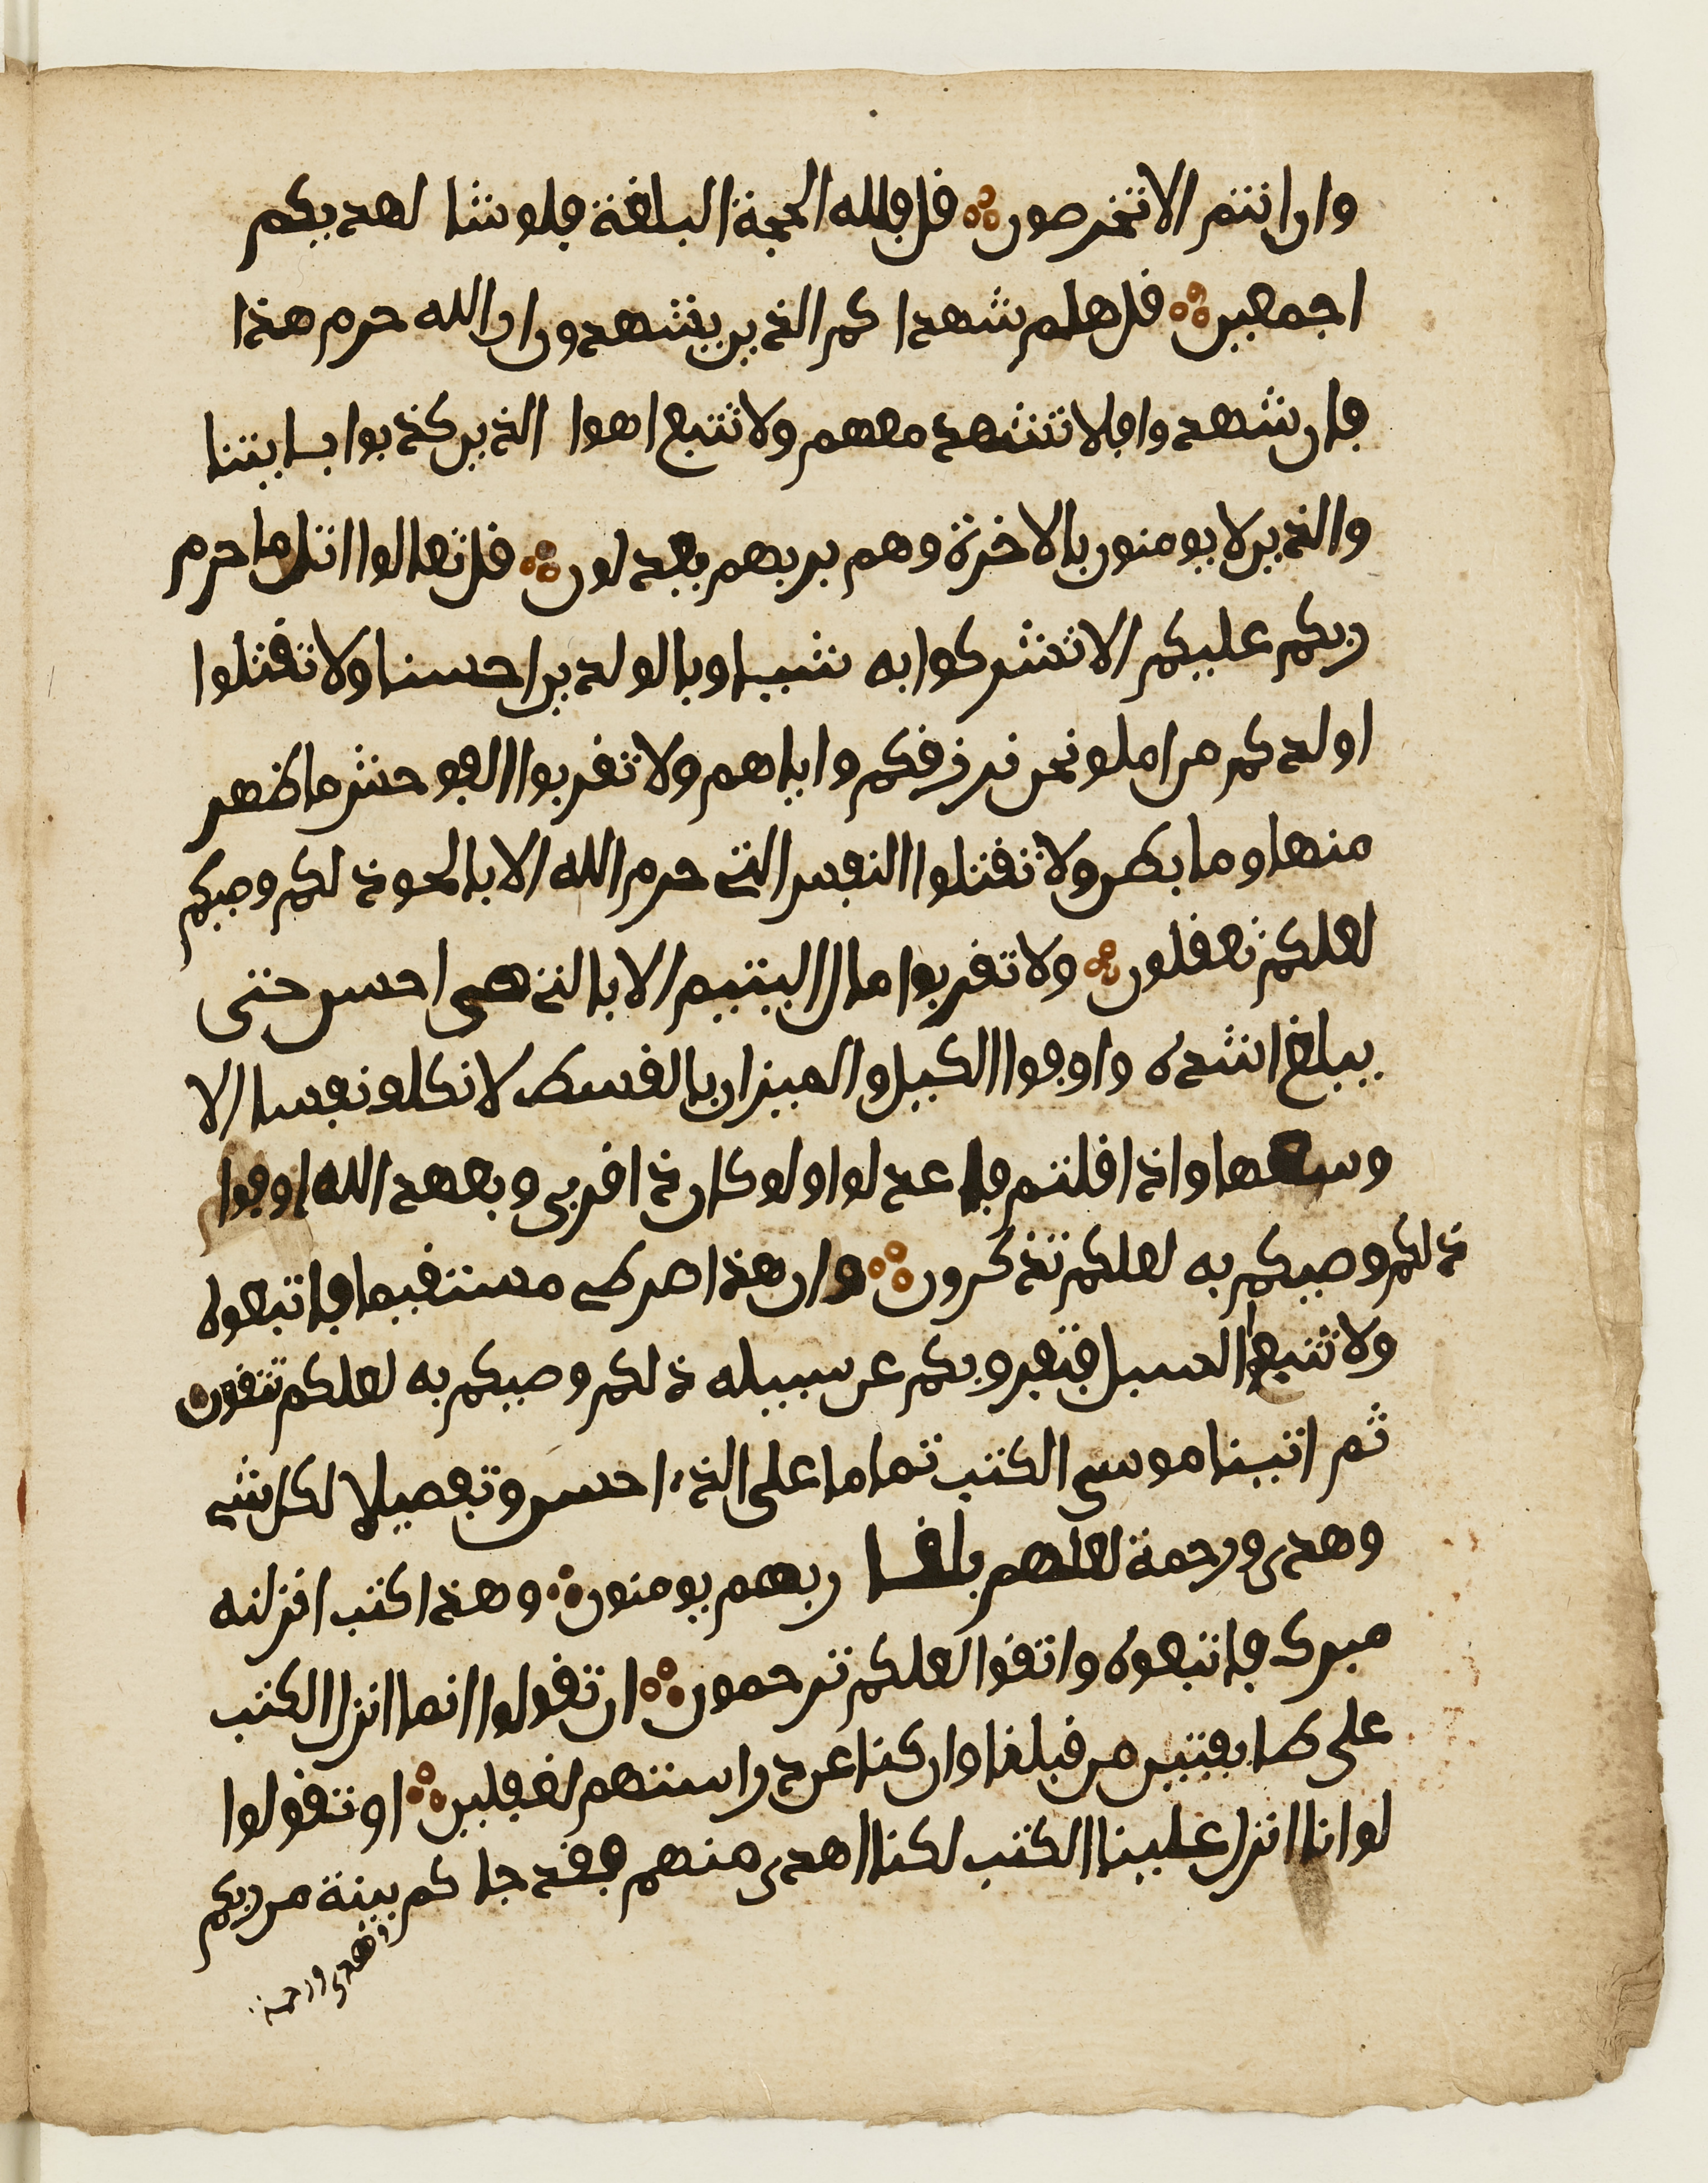 وان انتم الا تخرصون ۞ فل فلله الحجة البلغة فلو شا لهديكم
اجمعين ۞ فل هلم شهدا كم الذين يشهدون ان الله حرم هذا
فان شهدوا فلا تشهد معهم ولا تتبع اهوا الذين كذبوا بايتنا
والذين لا يومنون بالاخرة وهم بربهم يعدلون ۞ فل تعالوا اتل ما حرم
ربكم عليكم الا تشركوا به شيا وبالولدين احسنا ولا تفتلوا
اولدكم من املو نحن نرزفكم واياهم ولا تفربوا الفوحش ما ظهر
منها وما بطن ولا تفتلوا النفس التي حرم الله الا بالحو ذلكم وصيكم
لعلكم تعفلون ۞ ولا تفربوا مال اليتيم الا بالتي هي احسن حتى
يبلغ اشده واوفوا الكيل والميزان بالفسط لا نكلف نفسا الا
وسعها واذا فلتم فاعدلوا ولو كان ذا فربى وبعهد الله اوفوا
ذلكم وصيكم به لعلكم تذكرون ۞ وان هذا صرطي مستفيما فاتبعوه
ولا تتبعوا السبل فتفرو بكم عن سبيله ذلكم وصيكم به لعلكم تتفون
ثم اتينا موسى الكتب تماما على الذي احسن وتفصيلا لكل شي
وهدى ورحمة لعلهم بلفا ربهم يومنون ۞ وهذا كتب انزلنه
مبرك فاتبعوه واتفوا لعلكم ترحمون ۞ ان تفولوا انما انزل الكتب
على طايفتين من فبلنا وان كنا عن دراستهم لغفلين ۞ او تفولوا
لو انا انزل علينا الكتب لكنا اهدى منهم ففد جا كم بينة من ربكم
وهدى ورحمة